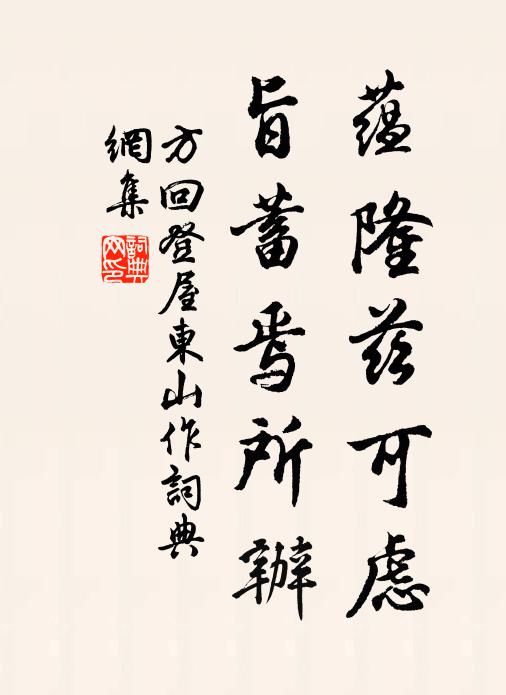 蕴隆兹可慮
旨蓄焉所辦
方回登屋東山作詞典
網集
詞典
网印